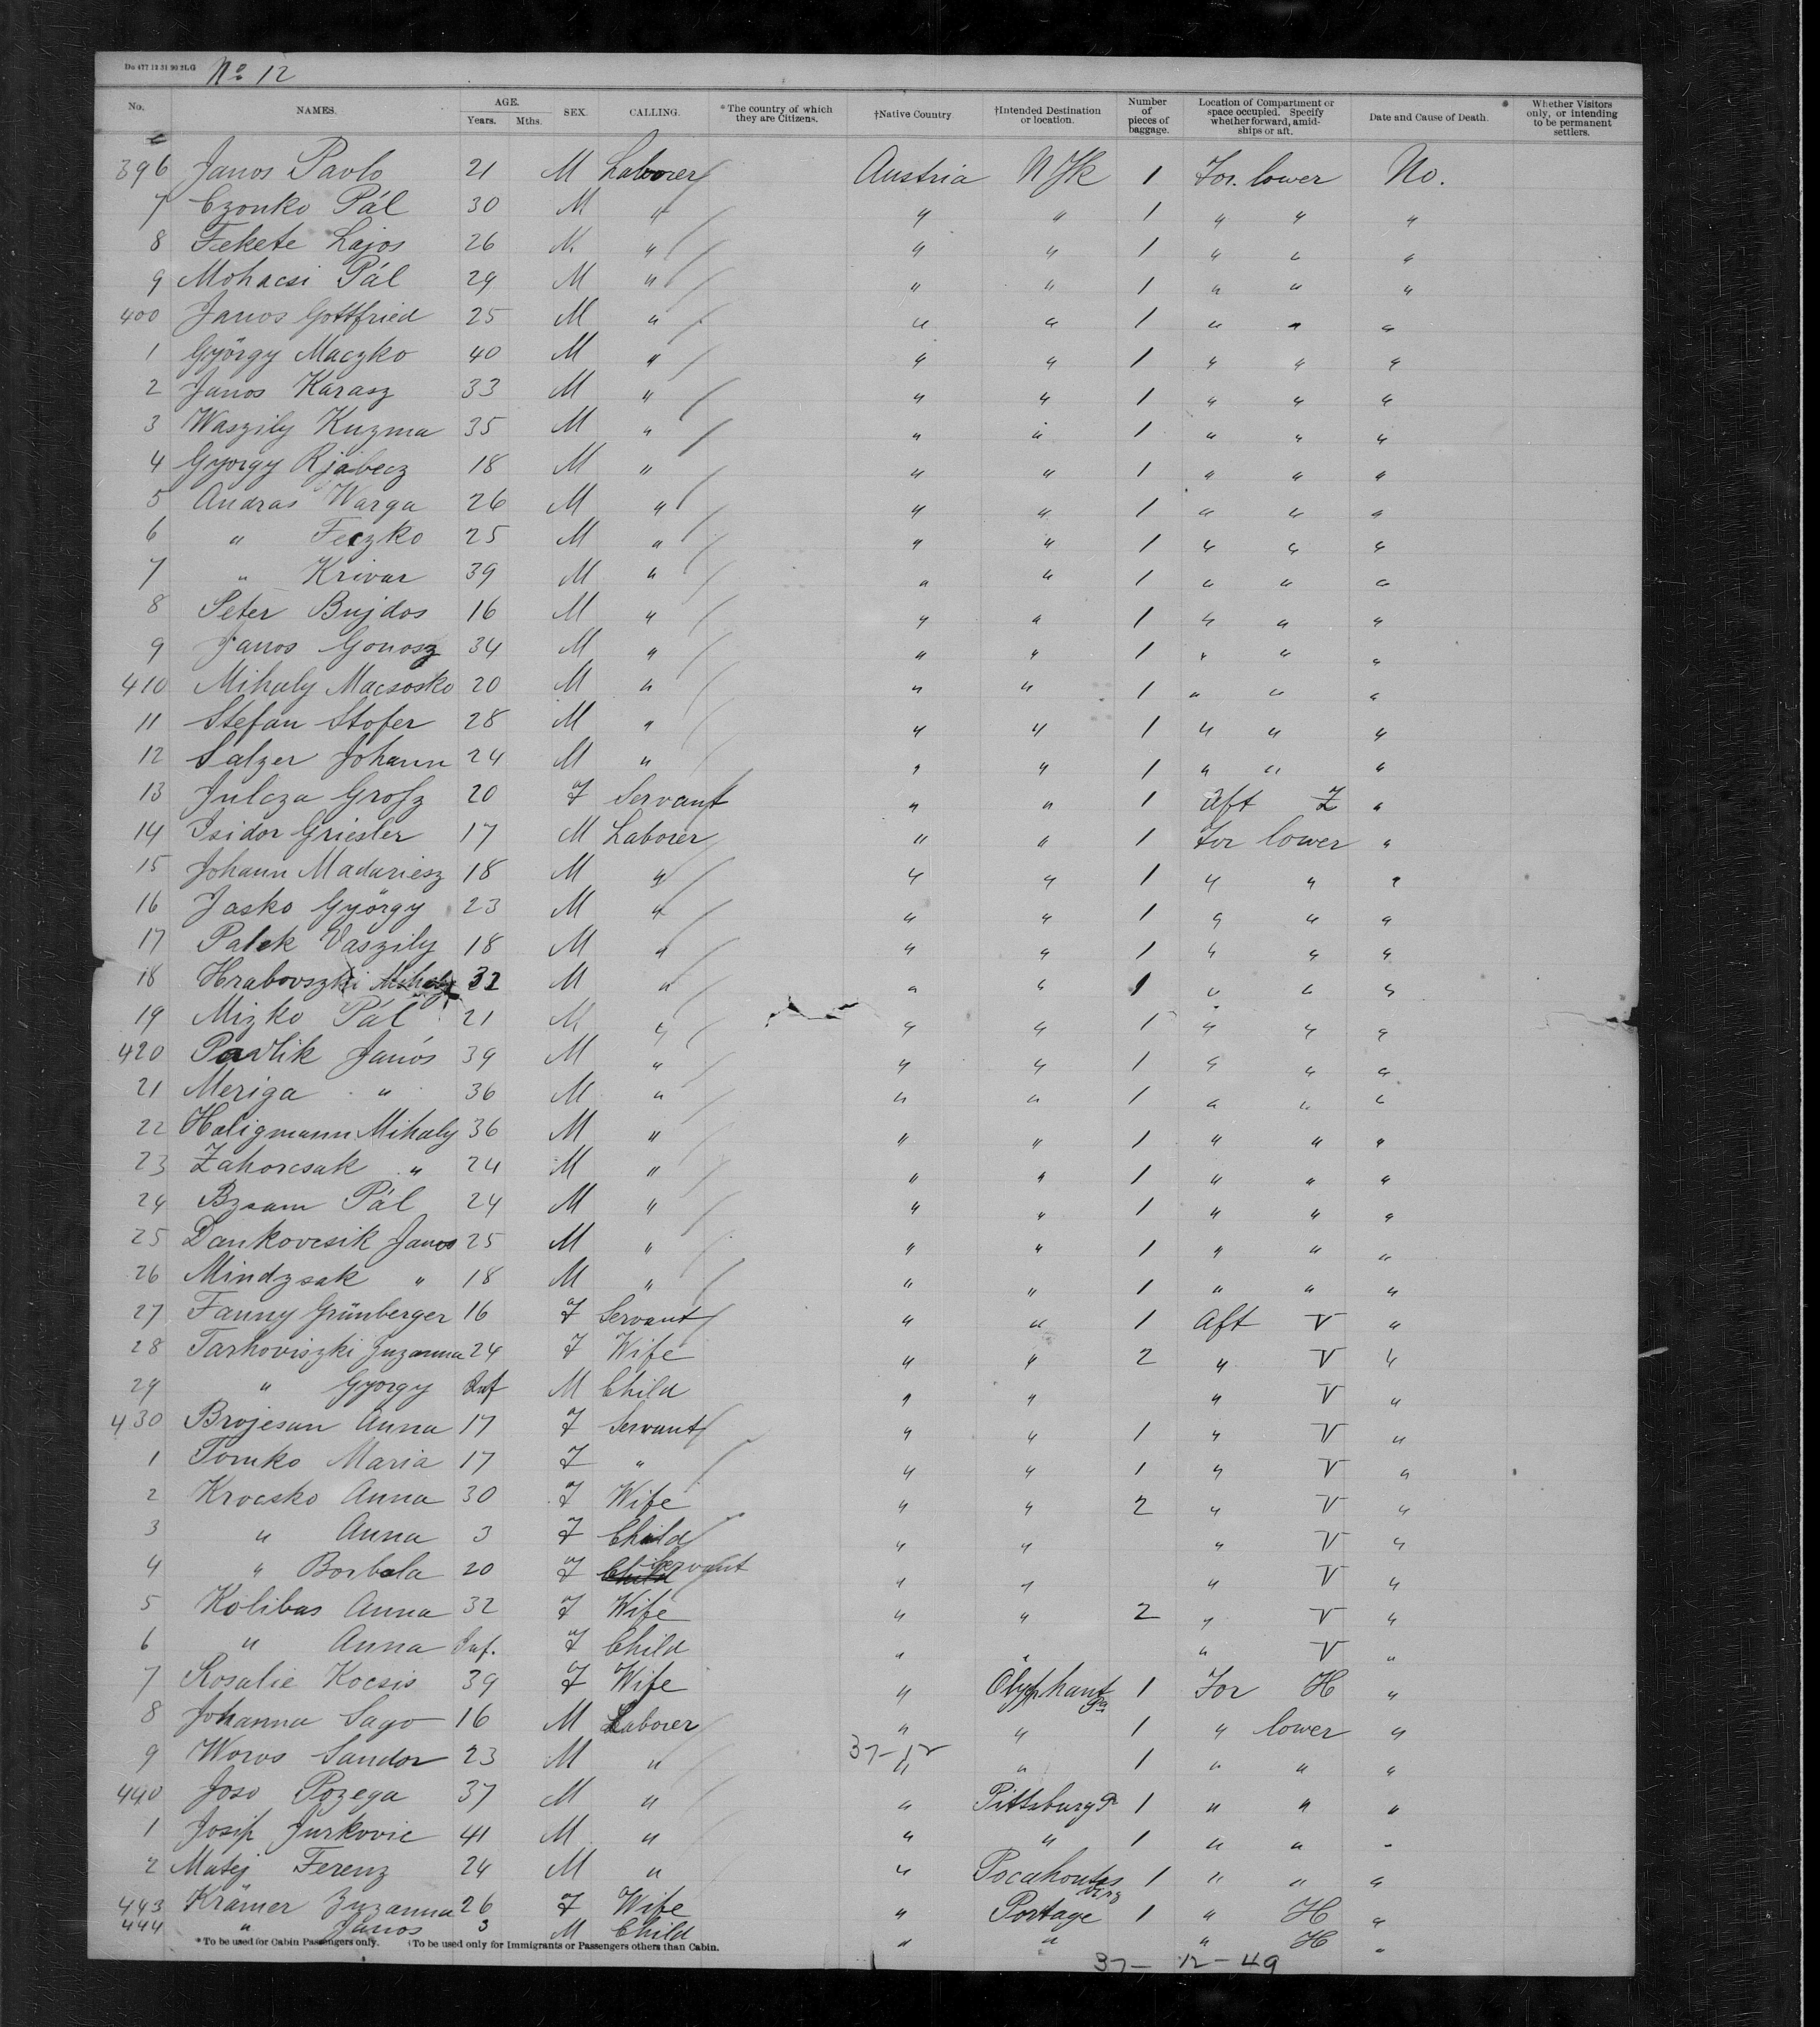 Do 477 12 31 90 2LG No 12
No. NAMES. AGE. Years. Mths. SEX. CALLING. *The country of which they are Citizens. †Native Country. †Intended Destination or location. Number of pieces of baggage. Location of Compartment or space occupied. Specify whether forward, amidships or aft. Date and Cause of Death. Whether Visitors only, or intending to be permanent settlers.
396 Janos Pavlo 21 M Laborer Austria NYk 1 For. lower No.
7 Czonko Pál 30 M " " " 1 " " "
8 Fekete Lajos 26 M " " " 1 " " "
9 Mohacsi Pál 29 M " " " 1 " " "
400 Janos Gottfried 25 M " " " 1 " " "
1 György Maczko 40 M " " " 1 " " "
2 Janos Karasz 33 M " " " 1 " " "
3 Waszily Kuzma 35 M " " " 1 " " "
4 Gyorgy Rjabecz 18 M " " " 1 " " "
5 Andras Warga 26 M " " " 1 " " "
6 " Feczko 25 M " " " 1 " " "
7 " Krivar 39 M " " " 1 " " "
8 Peter Bujdos 16 M " " " 1 " " "
9 Janos Gonosz 34 M " " " 1 " " "
410 Mihaly Macsosko 20 M " " " 1 " " "
11 Stefan Stofer 28 M " " " 1 " " "
12 Salzer Johann 24 M " " " 1 " " "
13 Julcza Grosz 20 F Servant " " 1 Aft Z "
14 Isidor Griesler 17 M Laborer " " 1 For lower "
15 Johann Madariesz 18 M " " " 1 " " "
16 Jasko György 23 M " " " 1 " " "
17 Palek Vaszily 18 M " " " 1 " " "
18 Hrabovszki Mihaly 32 M " " " 1 " " "
19 Mizko Pál 21 M " " " 1 " " "
420 Pavlik János 39 M " " " 1 " " "
21 Meriga " 36 M " " " 1 " " "
22 Haligmann Mihaly 36 M " " " 1 " " "
23 Zahorcsak " 24 M " " " 1 " " "
24 Bzsam Pál 24 M " " " 1 " " "
25 Dankovcsik Janos 25 M " " " 1 " " "
26 Mindzsak " 18 M " " " 1 " " "
27 Fanny Grünberger 16 F Servant " " 1 Aft V "
28 Tarhoviszki Zuzanna 24 F Wife " " 2 " V "
29 " György Inf M Child " " " V "
430 Brojesan Anna 17 F Servant " " 1 " V "
1 Tomko Maria 17 F " " " 1 " V "
2 Krocsko Anna 30 F Wife " " 2 " V "
3 " Anna 3 F Child " " " V "
4 " Borbala 20 F Child Servant " " " V "
5 Kolibas Anna 32 F Wife " " 2 " V "
6 " Anna Inf. F Child " " " V "
7 Rosalie Kocsis 39 F Wife " Olyphant Pa 1 For H "
8 Johanna Sago 16 M Laborer " " 1 " lower "
9 Woros Sandor 23 M " 37-12 " " 1 " " "
440 Joso Pozega 37 M " " Pittsburg Pa 1 " " "
1 Josip Jurkovic 41 M " " " 1 " " "
2 Matej Ferenz 24 M " " Pocahontas Virg 1 " " "
443 Krämer Zuzanna 26 F Wife " Portage 1 " H "
444 " Janos 3 M Child " " " H "
*To be used for Cabin Passengers only. †To be used only for Immigrants or Passengers others than Cabin.
37- 12-49